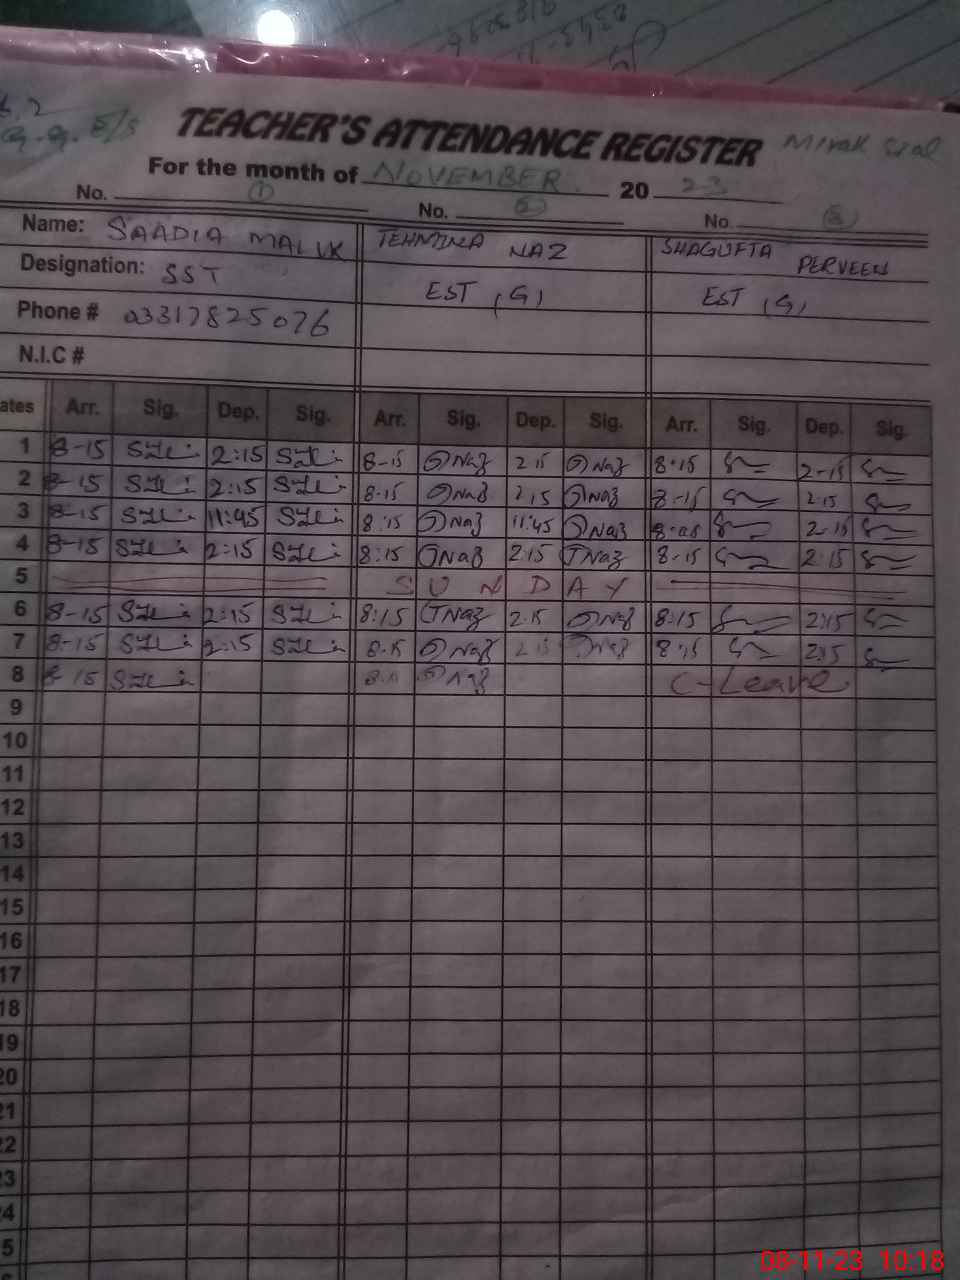 G.G. E/S
TEACHER'S ATTENDANCE REGISTER Mirak Sial
For the month of NOVEMBER 20 23
No. 1 No. 2 No. 3
Name: SAADIA MALUK TEHMINA NAZ SHAGUFTA PERVEEN
Designation: SST EST (G) EST (G)
Phone # 03317825076
N.I.C #
ates Arr. Sig. Dep. Sig. Arr. Sig. Dep. Sig. Arr. Sig. Dep. Sig.
1 8-15 2:15 8-15 TNaz 2 15 TNaz 8-15 2-15
2 8-15 2:15 8-15 TNaz 2,15 TNaz 8-15 2:15
3 8-15 11:45 8:15 TNaz 11:45 TNaz 2-15
4 8-15 2:15 8:15 TNaz 2:15 TNaz 8-15 2:15
5 SUNDAY
6 8-15 2:15 8:15 TNaz 2.15 TNaz 8:15 2:15
7 8-15 2:15 8.15 TNaz 2 15 TNaz 8:15 2:15
8 8-15 TNaz C-Leave
9
10
11
12
13
14
15
16
17
18
19
20
21
22
23
24
5
08-11-23 10:18